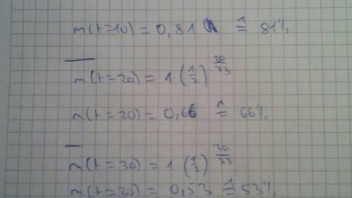 m(t=10) = 0,81 ≙ 81%
m(t=20) = 1·(1/2)^(20/33)
m(t=20) = 0,66 ≙ 66%
m(t=30) = 1·(1/2)^(30/33)
m(t=30) = 0,53 ≙ 53%